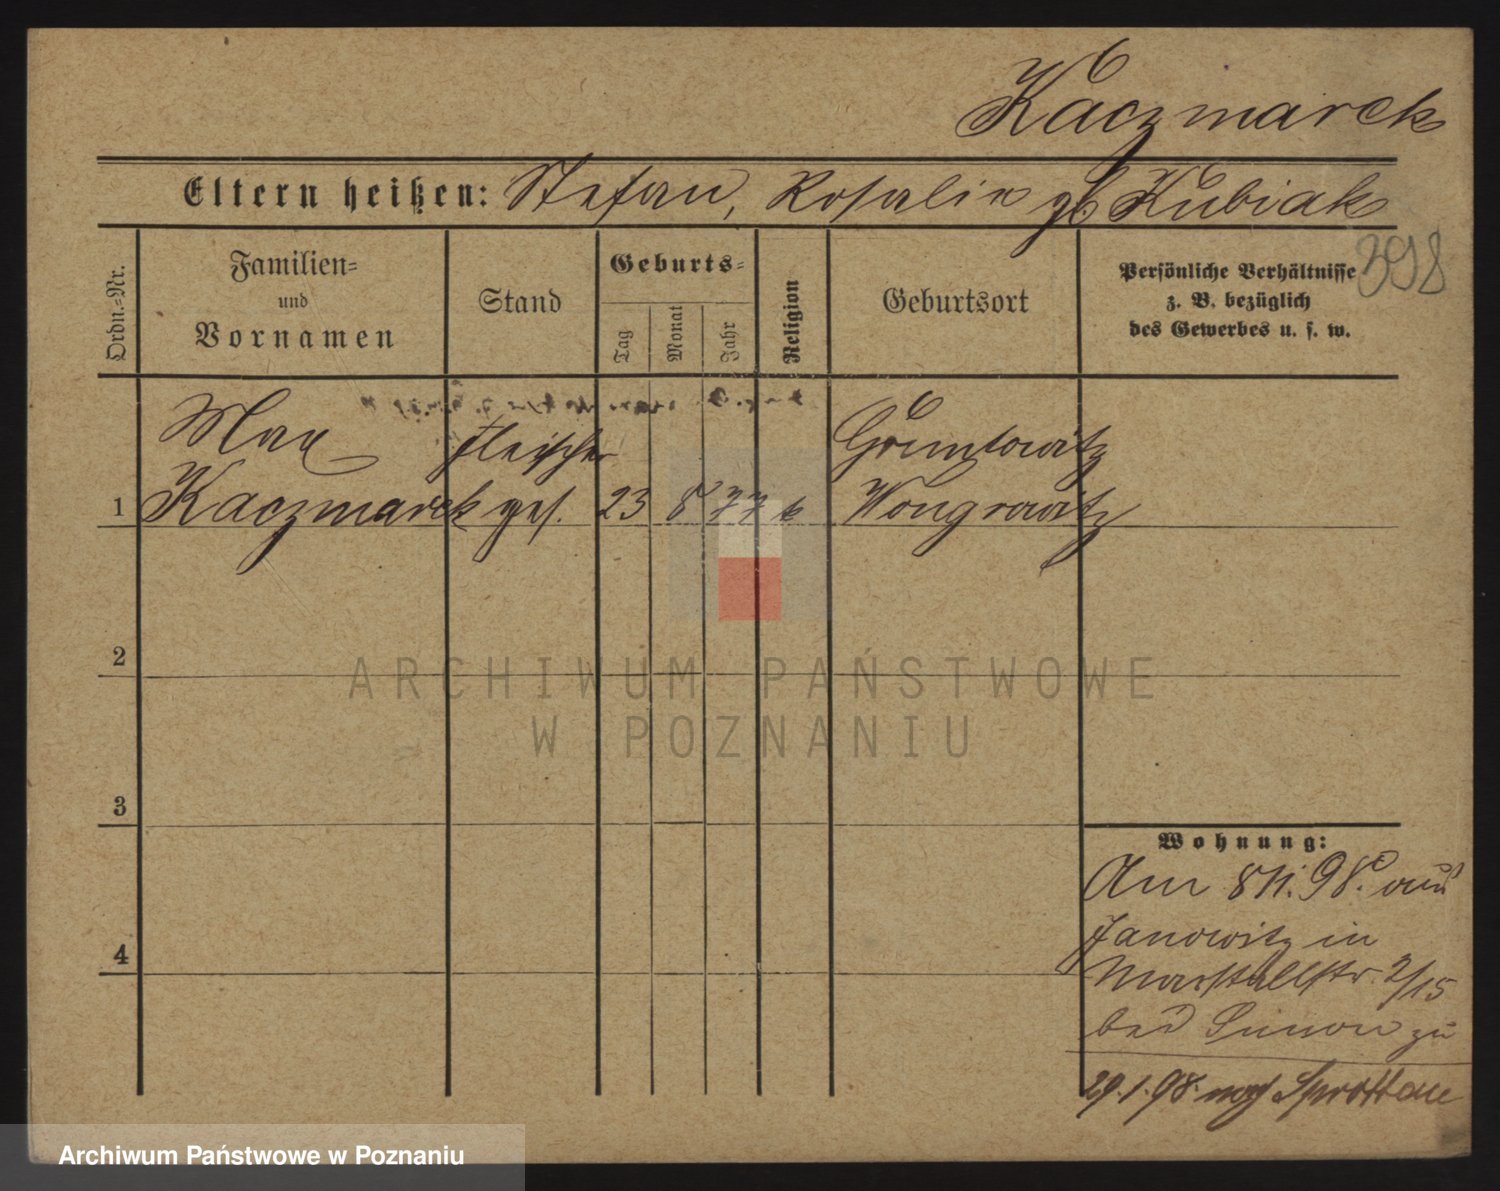 Kaczmarek
Eltern heißen: Stefan, Rosalie gb Kubiak
398
Ordn.-Nr.
Familien-
und
Vornamen
Stand
Geburts-
Tag
Monat
Jahr
Religion
Geburtsort
Persönliche Verhältnisse
z. B. bezüglich
des Gewerbes u. s. w.
Max Fleischer
1 Kaczmarek ges. 23 8 77 k Wongrowitz
2
3
4
Wohnung:
Am 8/1. 98. aus
Janowitz in
Marstallstr. 2/15
bei Simon zu
29.1.98. nach Sprottau
ARCHIWUM PAŃSTWOWE
W POZNANIU
Archiwum Państwowe w Poznaniu